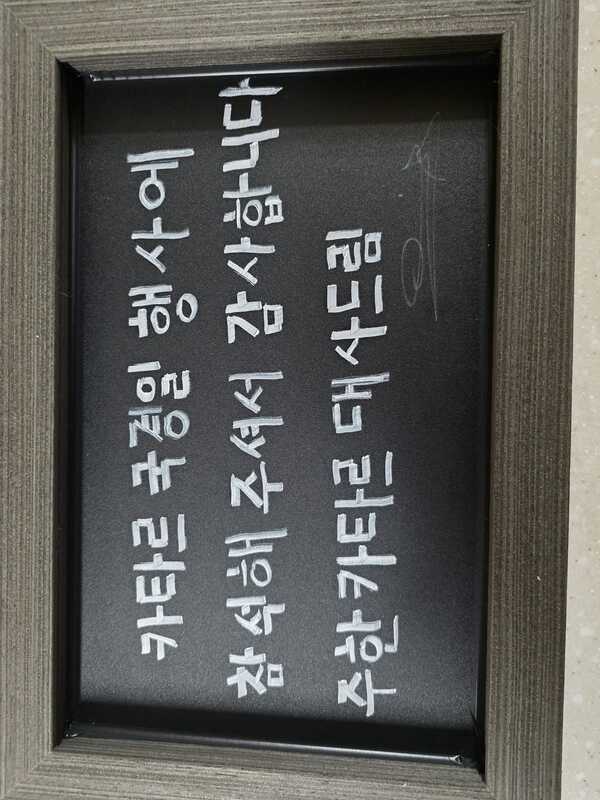 카타르 국경일 행사에
참석해 주셔서 감사합니다
주한카타르 대사드림